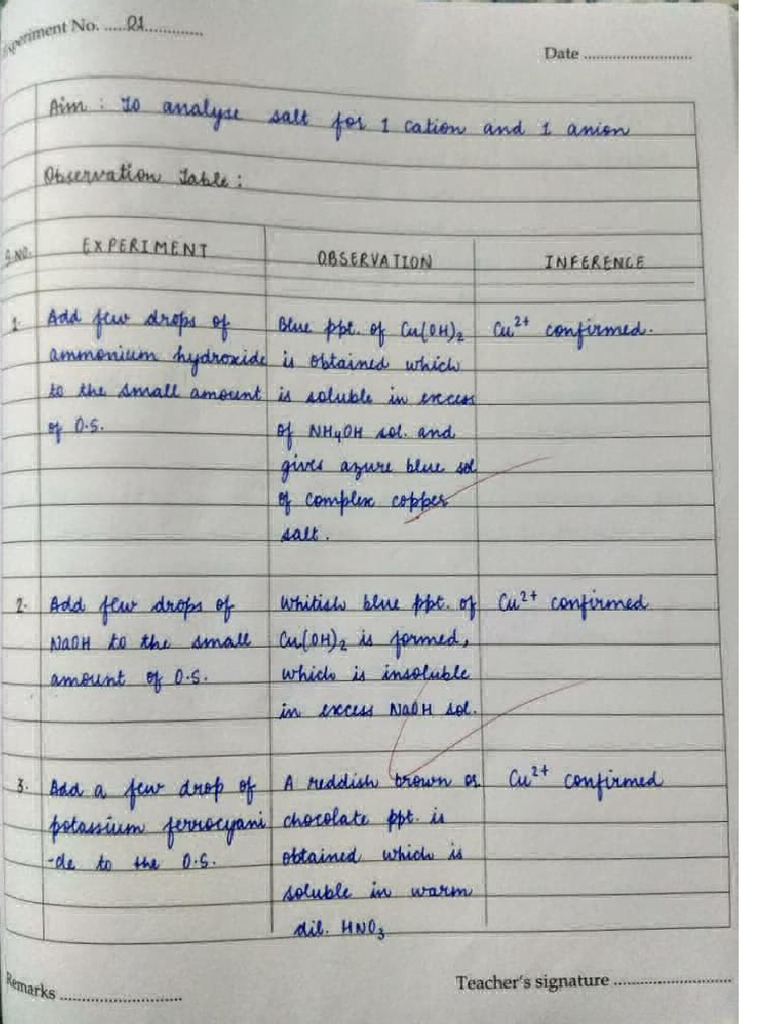 Experiment No. .....01.............
Date ..........................
Aim : To analyse salt for 1 cation and 1 anion
Observation Table :
S.NO. EXPERIMENT OBSERVATION INFERENCE
1. Add few drops of Blue ppt. of Cu(OH)₂ Cu²⁺ confirmed.
ammonium hydroxide is obtained which
to the small amount is soluble in excess
of O.S. of NH₄OH sol. and
gives azure blue sol
of complex copper
salt.
2. Add few drops of Whitish blue ppt. of Cu²⁺ confirmed
NaOH to the small Cu(OH)₂ is formed,
amount of O.S. which is insoluble
in excess NaOH sol.
3. Add a few drop of A reddish brown or Cu²⁺ confirmed
potassium ferrocyani chocolate ppt. is
-de to the O.S. obtained which is
soluble in warm
dil. HNO₃
Remarks .............................
Teacher's signature .............................